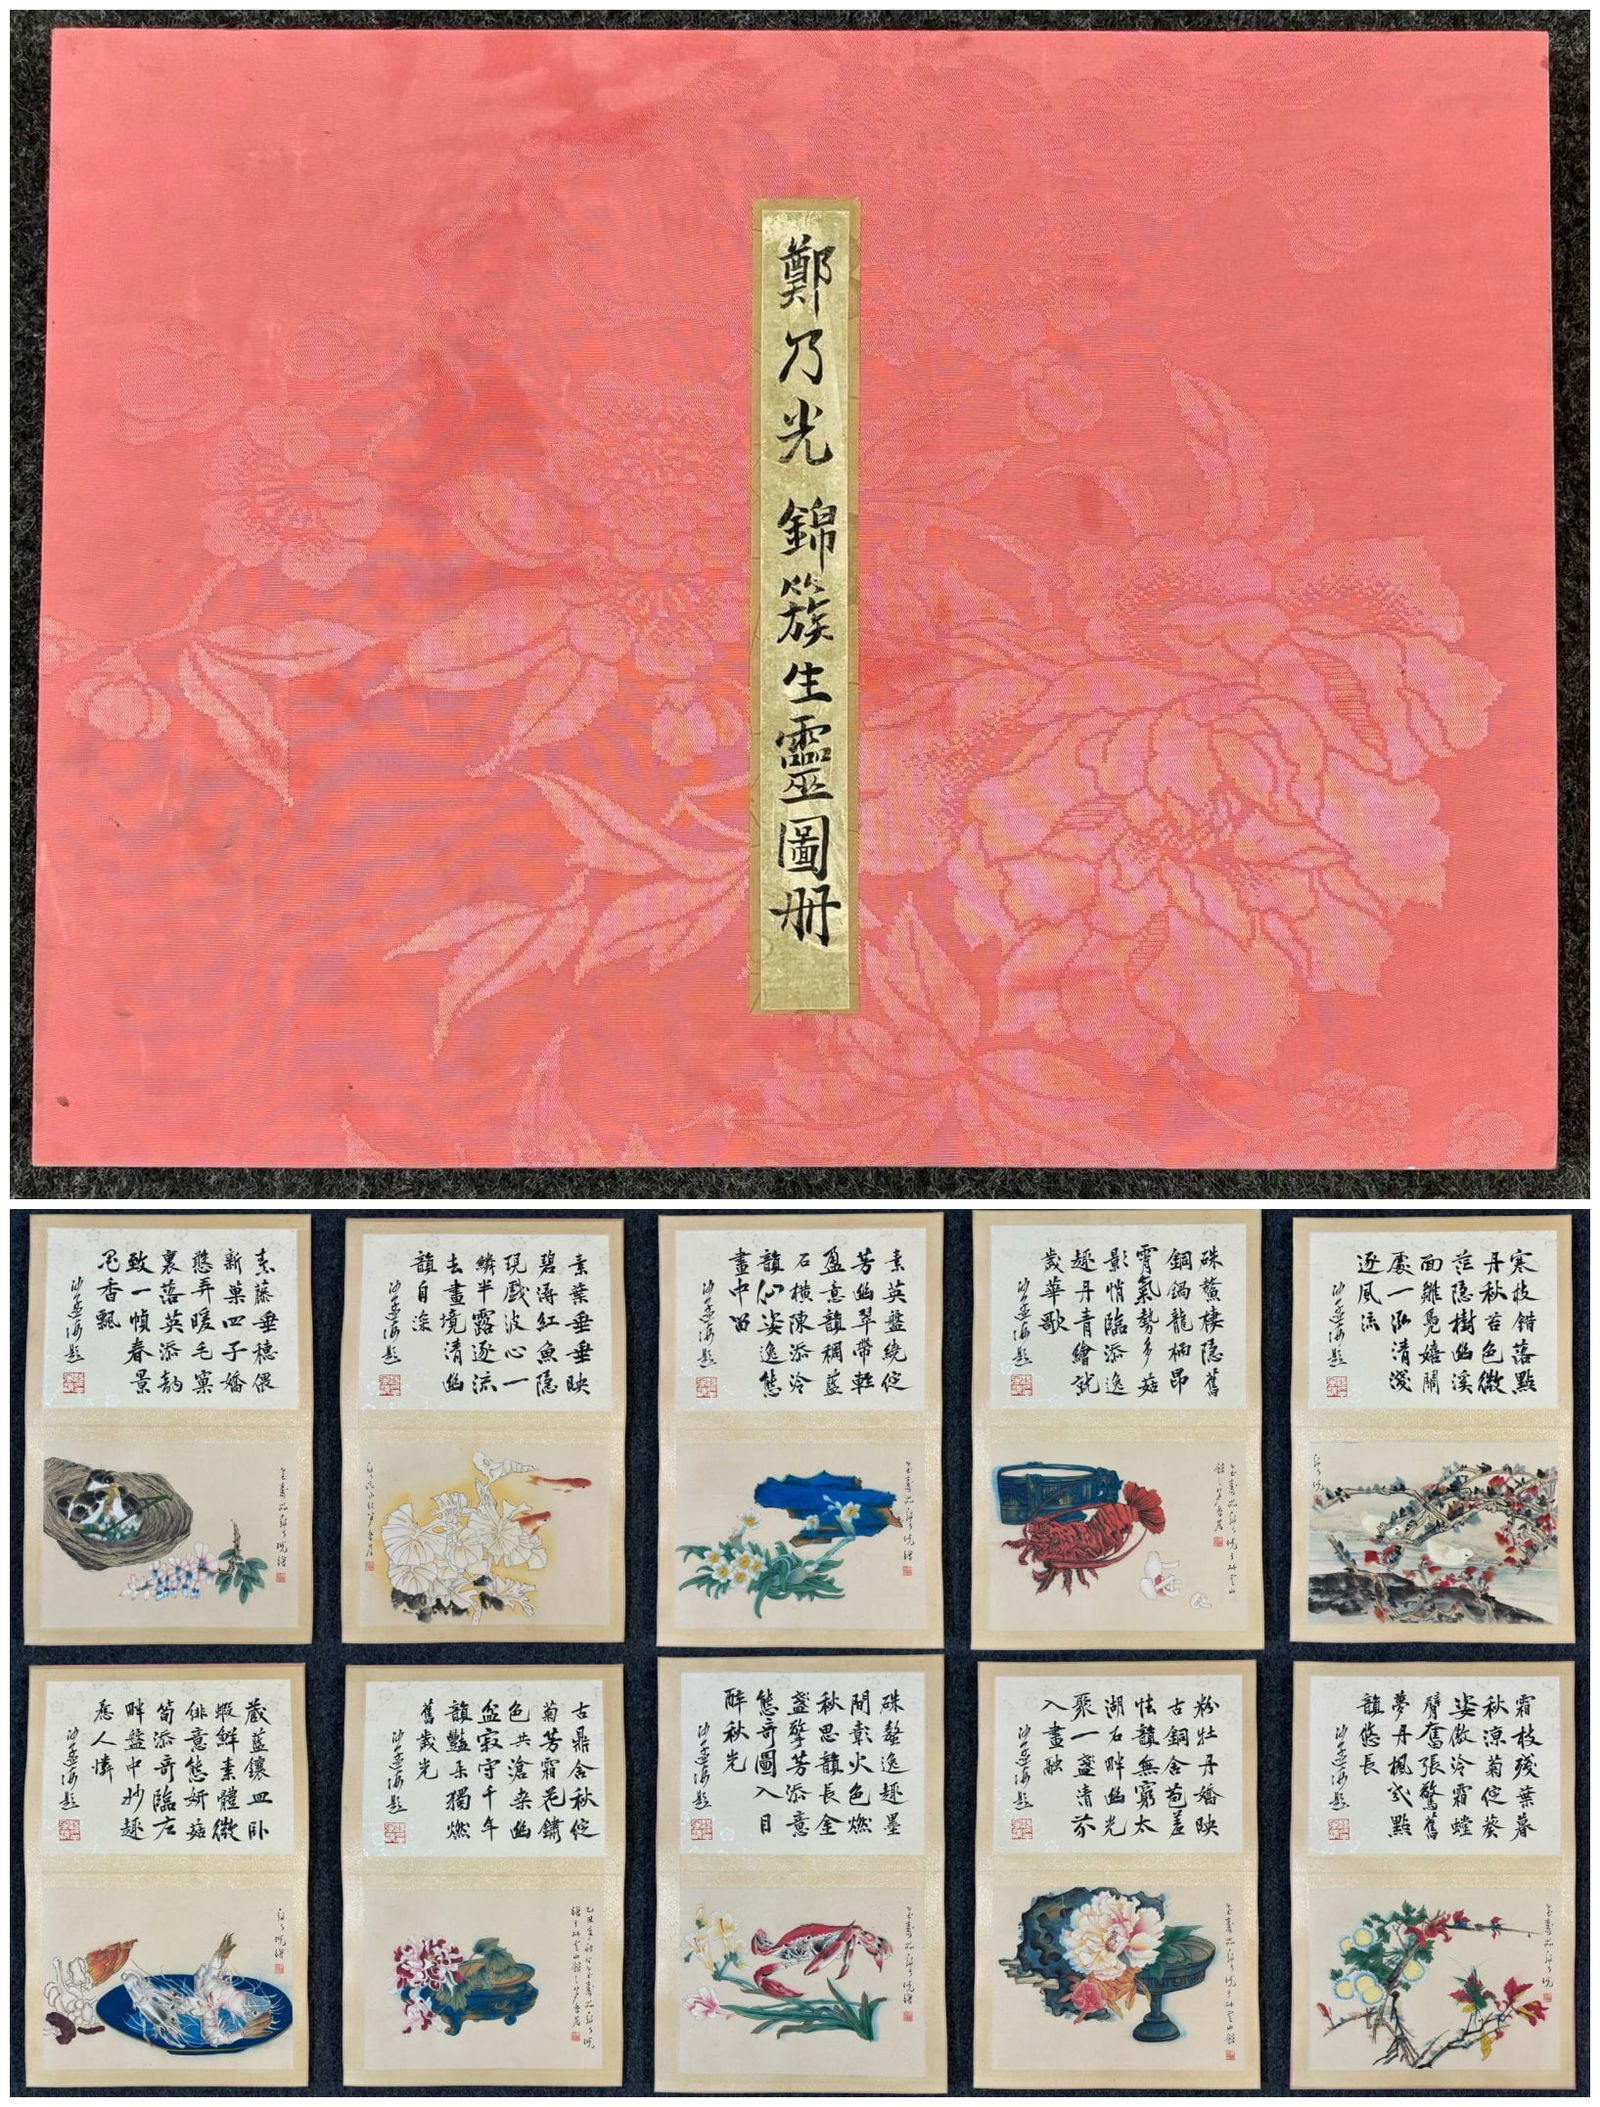 鄭乃光 錦簇生靈圖册
素藤垂穗偎
新巢四子嬌
憨弄暖毛窠
裏落英添韵
致一幀春景
香飄
沙孟海題
鄭乃珖繪
素葉垂垂映
碧潯紅魚隱
現戲波心一
鱗半露逐流
去畫境清幽
韻自深
沙孟海題
素英盤繞綻
芳幽翠帶輕
盈意韻稠藍
石橫陳添冷
韻仙姿逸態
畫中留
沙孟海題
鄭乃珖繪
硃鰲棲隱舊
銅鍋龍柄昂
霄氣勢多菇
影悄臨添逸
趣丹青繪就
歲華歌
沙孟海題
寒枝錯落點
丹秋苔色微
茫隱樹幽溪
面雛鳧嬉鬧
處一泓清淺
逐風流
沙孟海題
鄭乃珖
葳藍鑲皿卧
蝦鮮素體微
俳意態妍菇
筍添奇臨左
畔盤中妙趣
惹人憐
沙孟海題
鄭乃珖繪
古鼎含秋綻
菊芳霜花鏽
色共滄桑幽
盆寂守千年
韻豔朵獨燃
舊歲光
沙孟海題
硃螯逸趣墨
間彰火色燃
秋思韻長金
盞擎芳添意
態奇圖入目
醉秋光
沙孟海題
鄭乃珖繪
粉牡丹嬌映
古銅含苞羞
怯韻無窮太
湖石畔幽光
聚一盞清芬
入畫融
沙孟海題
霜枝殘葉暮
秋涼菊綻葵
姿傲冷霜螳
臂奮張驚舊
夢丹楓弍點
韻悠長
沙孟海題
鄭乃珖